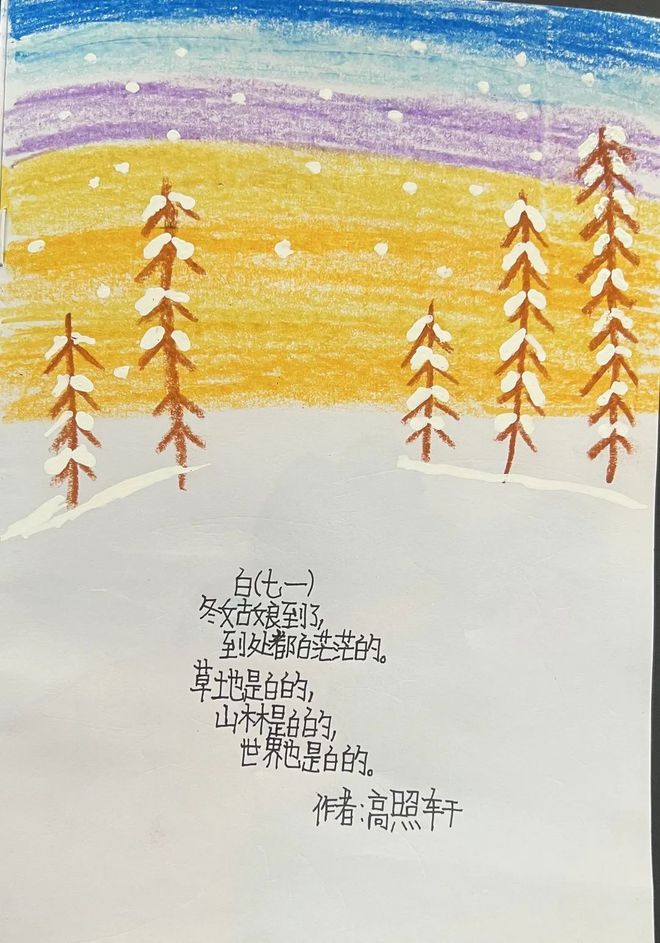 白(七一)
冬姑娘到了,
到处都白茫茫的。
草地是白的,
山林是白的,
世界也是白的。
作者:高照轩